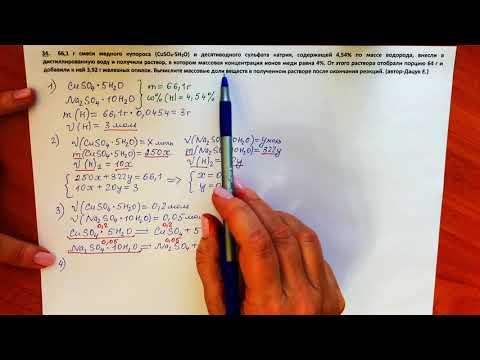 34. 66,1 г смеси медного купороса (CuSO₄·5H₂O) и десятиводного сульфата натрия, содержащей 4,54% по массе водорода, внесли в
дистиллированную воду и получили раствор, в котором массовая концентрация ионов меди равна 4%. От этого раствора отобрали порцию 64 г и
добавили к ней 3,92 г железных опилок. Вычислите массовые доли веществ в полученном растворе после окончания реакций. (автор-Дацук Е.)
1) CuSO₄·5H₂O } m = 66,1г
Na₂SO₄·10H₂O } ω%(H) = 4,54%
m(H) = 66,1г·0,0454 = 3г
ν(H) = 3 моль
2) ν(CuSO₄·5H₂O) = x моль
m(CuSO₄·5H₂O) = 250x = 322y
ν(H)₁ = 10x ν(H)₂ =
{ 250x + 322y = 66,1 ⟹ { x = 0
10x + 20y = 3 y =
3) ν(CuSO₄·5H₂O) = 0,2 моль
ν(Na₂SO₄·10H₂O) = 0,05 моль
0,2 0,2
CuSO₄·5H₂O = CuSO₄ + 5
0,05 0,05
Na₂SO₄·10H₂O = Na₂SO₄ +
4)